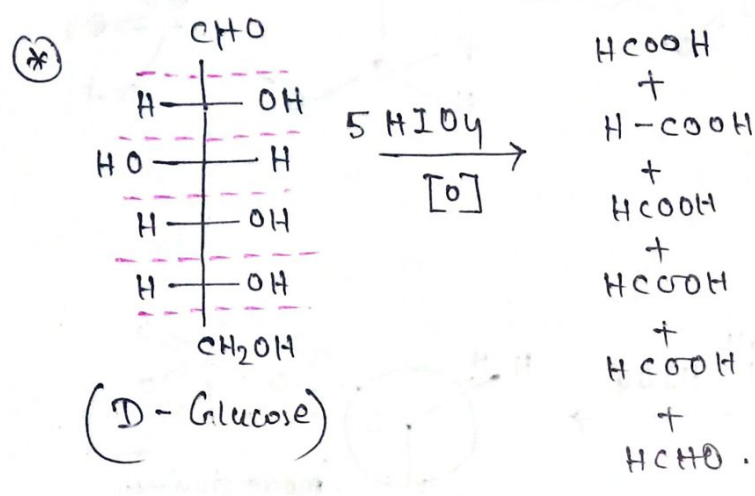 (*)
CHO
H OH
HO H
H OH
H OH
CH2OH
(D - Glucose)
5 HIO4
[O]
HCOOH
+
H-COOH
+
HCOOH
+
HCOOH
+
HCOOH
+
HCHO.